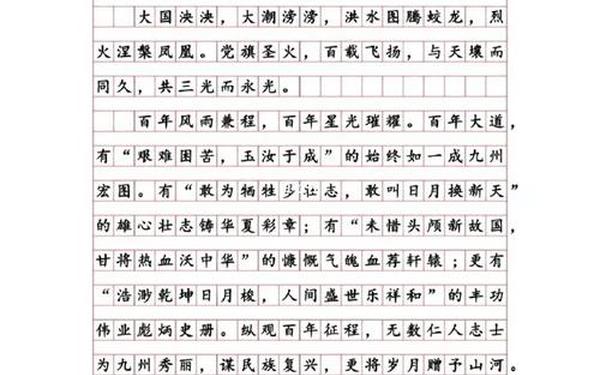 大国泱泱，大潮滂滂，洪水图腾蛟龙，烈
火涅槃凤凰。党旗圣火，百载飞扬，与天壤而
同久，共三光而永光。
百年风雨兼程，百年星光璀耀。百年大道，
有“艰难困苦，玉汝于成”的始终如一成九州
宏图。有“敢为牺牲多壮志，敢叫日月换新天”
的雄心壮志铸华夏彩章；有“未惜头颅新故国，
甘将热血沃中华”的慷慨气魄血荐轩辕；更有
“浩渺乾坤日月梭，人间盛世乐祥和”的丰功
伟业彪炳史册。纵观百年征程，无数仁人志士
为九州秀丽，谋民族复兴，更将岁月赠予山河。